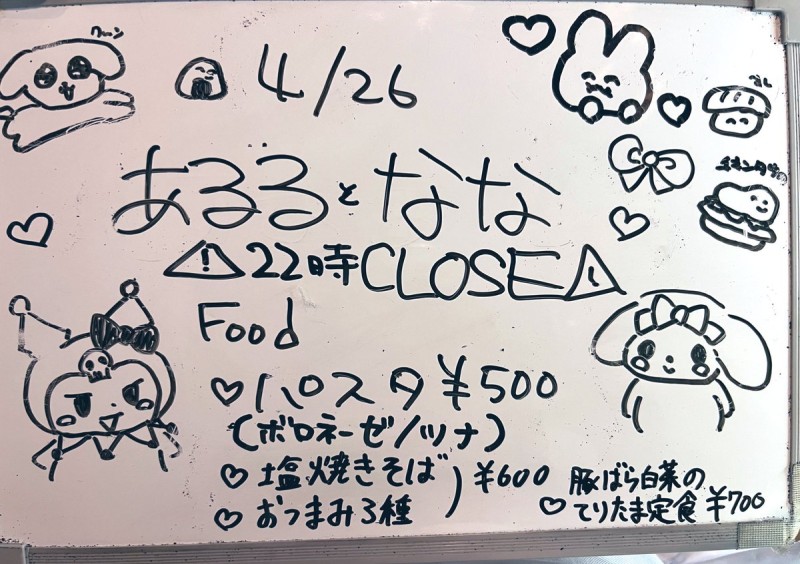 4/26
あるるとなな
⚠22時CLOSE⚠
Food
♡パスタ ¥500
(ボロネーゼ/ツナ)
♡塩焼きそば
♡おつまみ3種
) ¥600
豚ばら白菜の
♡てりたま定食 ¥700